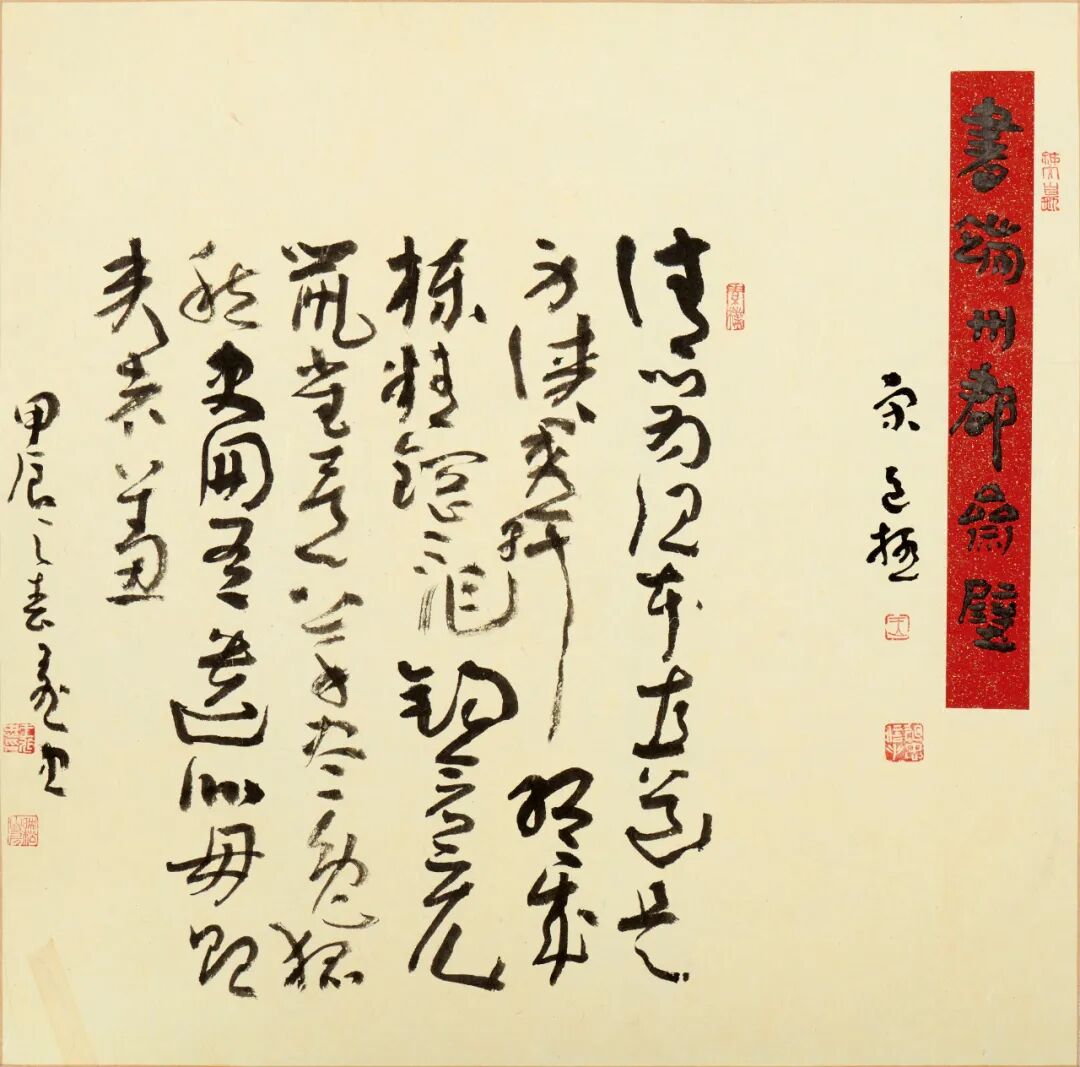 書端州郡齋壁
宋 包拯
清心為治本直道是
身謀秀幹終成
棟精鋼不作鉤倉充
鼠雀喜草盡兔狐
愁史冊有遺訓毋貽
來者羞
甲辰之春 書